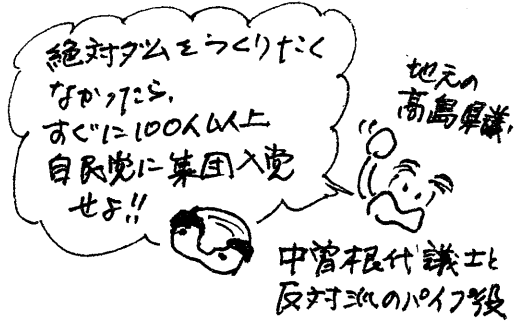 絶対ダムをつくりたく
なかったら、
すぐに100人以上
自民党に集団入党
せよ!!
地元の
高島県議、
中曽根代議士と
反対派のパイプ役